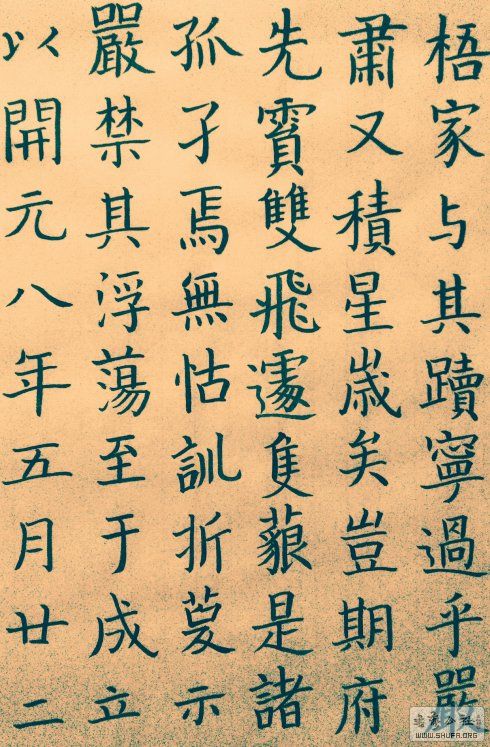 梧家与其蹟寧過乎嚴
肅又積星歲矣豈期府
先霣雙飛遽隻藐是諸
孤孑焉無怙訓折葼示
嚴禁其浮蕩至于成立
以開元八年五月廿二
WWW.SHUFA.ORG